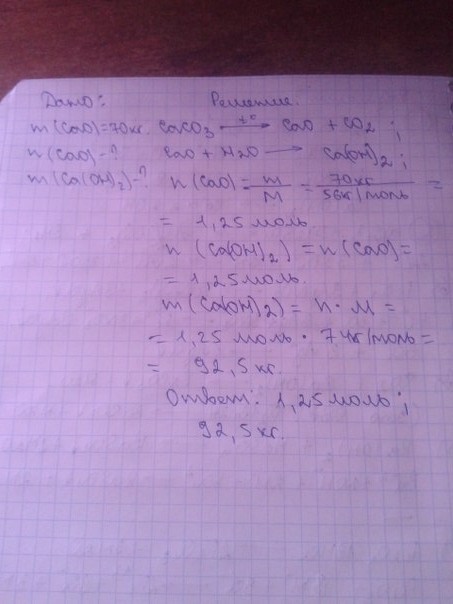 Дано: Решение.
m(CaO)=70кг. CaCO3 —t°→ CaO + CO2 ;
n(CaO)-? CaO + H2O → Ca(OH)2 ;
m(Ca(OH)2)-? n(CaO) = m/M = 70кг/56кг/моль =
= 1,25 моль.
n (Ca(OH)2) = n(CaO)=
= 1,25 моль.
m(Ca(OH)2) = n · M =
= 1,25 моль · 74кг/моль =
= 92,5 кг.
Ответ: 1,25 моль ;
92,5 кг.